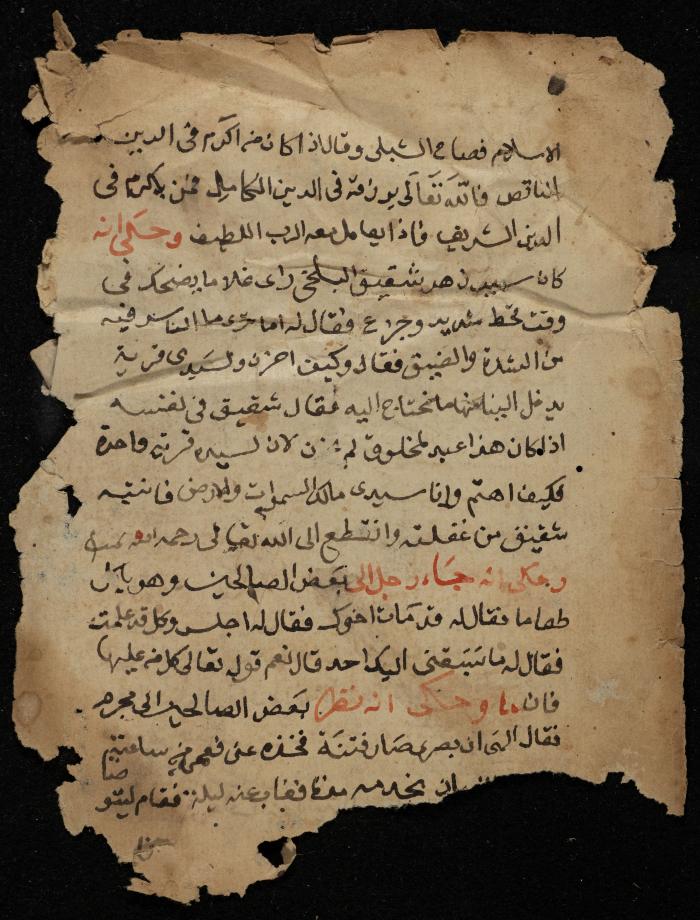 الاسلام فصاح الشبلى وقال اذا كان من اكرم فى الدين
الناقص فالله تَعَالَى يرزقه فى الدين الكامل فمن يكرم فى
الدين الشريف فماذا يعامل معه الرب اللطيف وحكى انه
كان سبب زهد شقيق البلخى راى غلاما يضحك فى
وقت قحط شديد وجزع فقال له اما ترى ما الناس فيه
من الشدة والضيق فقال وكيف احزن ولسيدى قرية
يدخل الينا منها ما نحتاج اليه فقال شقيق فى نفسه
اذا كان هذا عبد لمخلوق لم يحزن لان لسيده قرية واحدة
فكيف اهتم وانا سيدى مالك السموات والارض فانتبه
شقيق من غفلته وانقطع الى الله تعالى رحمه الله
وحكى انه جَاء رجل الى بعض الصالحين وهو ياكل
طعاما فقال له قد مات اخوك فقال له اجلس وكل قد علمت
فقال له ما سَبَقنى اليك احد قال نعم قوله تعالى كل من عليها
فان وحكى انه نظر بعض الصالحين الى
فقال الهى ان بصرى صَار فتنة فخذه عنى فعمى من ساعته
يخدمه فغاب عنه ليلة فقام ليتو
ضا